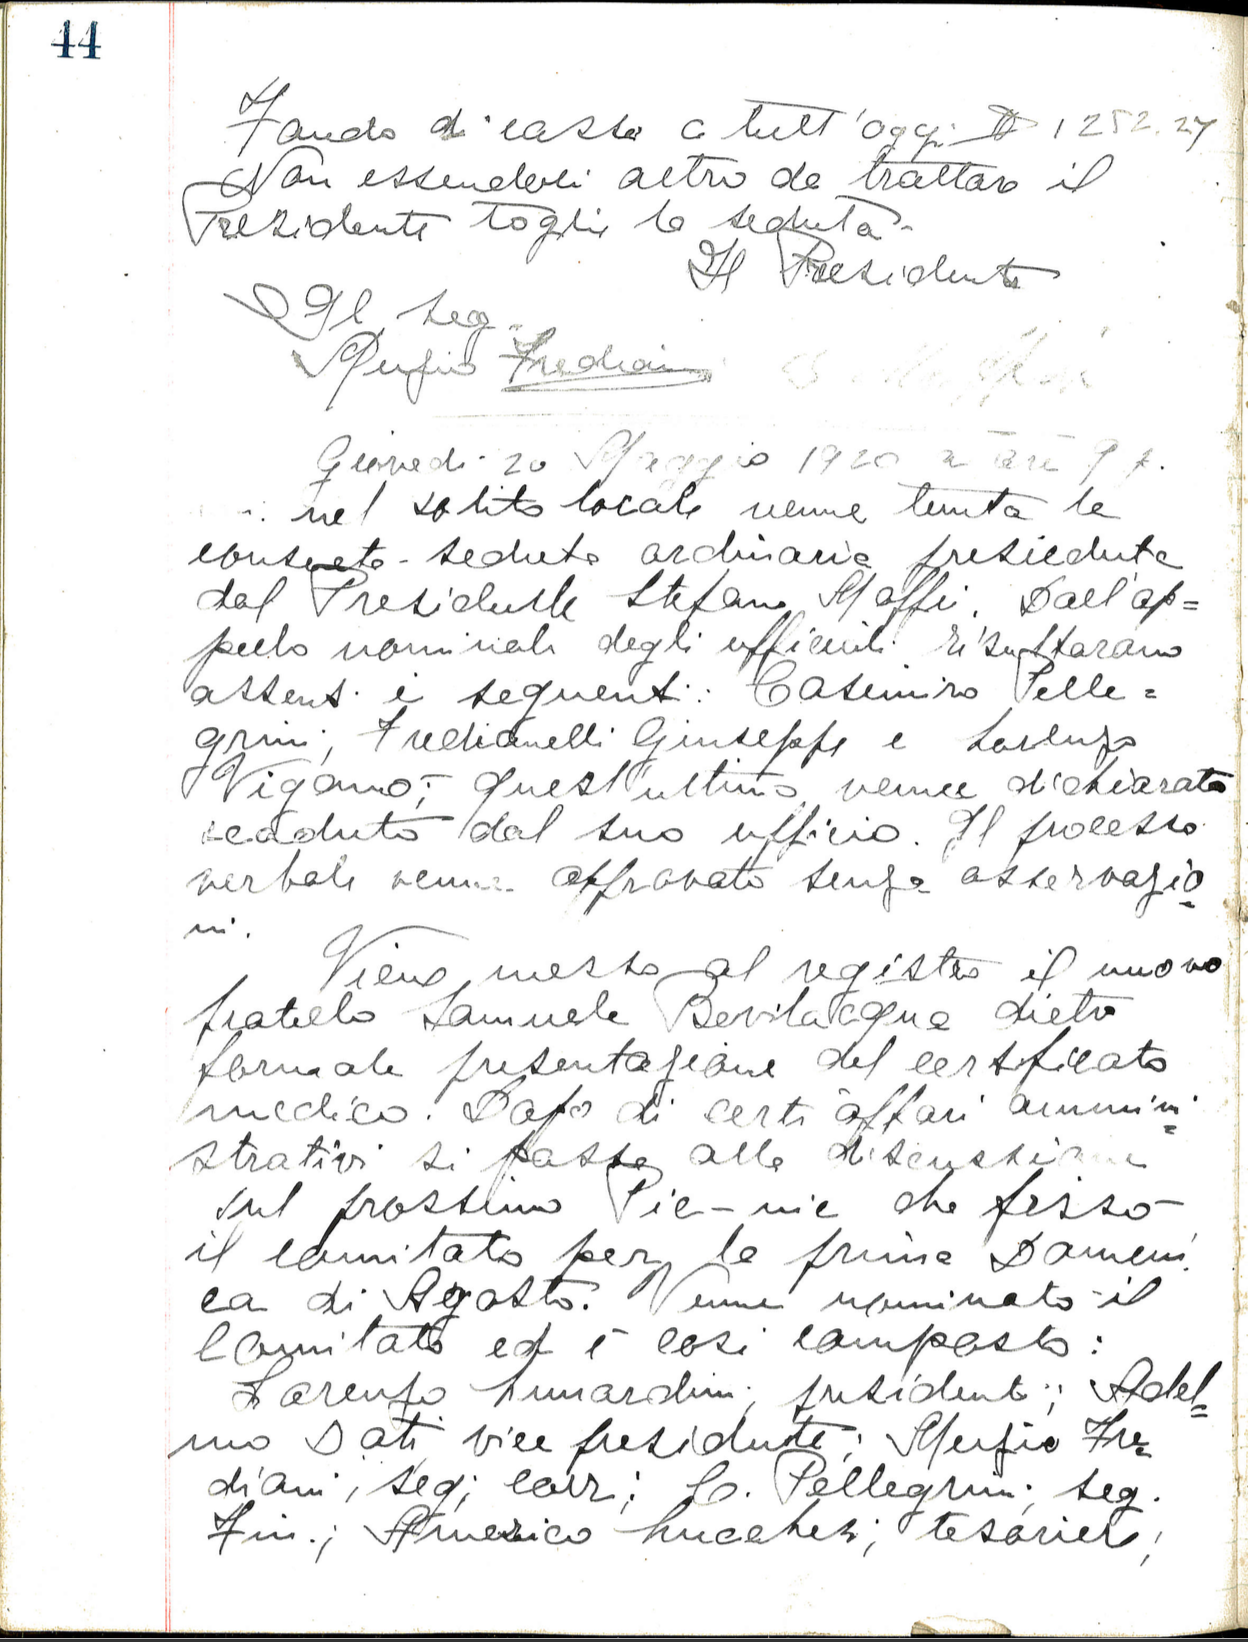 44
Fondo di cassa a tutt'oggi $ 1252.27
Non essendovi altro da trattare il
Presidente toglie la seduta.
Il Presidente
Il seg.
Mufio Frediani
Giovedi 20 Maggio 1920 a ore 7 p.
nel solito locale venne tenuta la
consueta seduta ordinaria presieduta
dal Presidente Stefano Maffei. Dall'ap=
pello nominale degli ufficiali risultarano
assenti i seguenti: Casemiro Pelle=
grini, Fredianelli Giuseppe e Lorenzo
Vigano; quest'ultimo venne dichiarato
scaduto dal suo ufficio. Il processo
verbale venne approvato senza osservazio=
ni.
Viene messo al registro il nuovo
fratello Samuele Bevilacqua dietro
formale presentazione del certificato
medico. Dopo di certi affari ammini=
strativi si passa alla discussione
sul prossimo Pic-nic che fissò
il comitato per la prima Domeni
ca di Agosto. Venne nominato il
Comitato ed è cosi composto:
Lorenzo Lunardini, presidente; Adel=
mo Dati vice presidente; Mufio Fre=
diani, seg; corr; C. Pellegrini, seg.
Fin.; Americo Lucchesi, tesoriere;